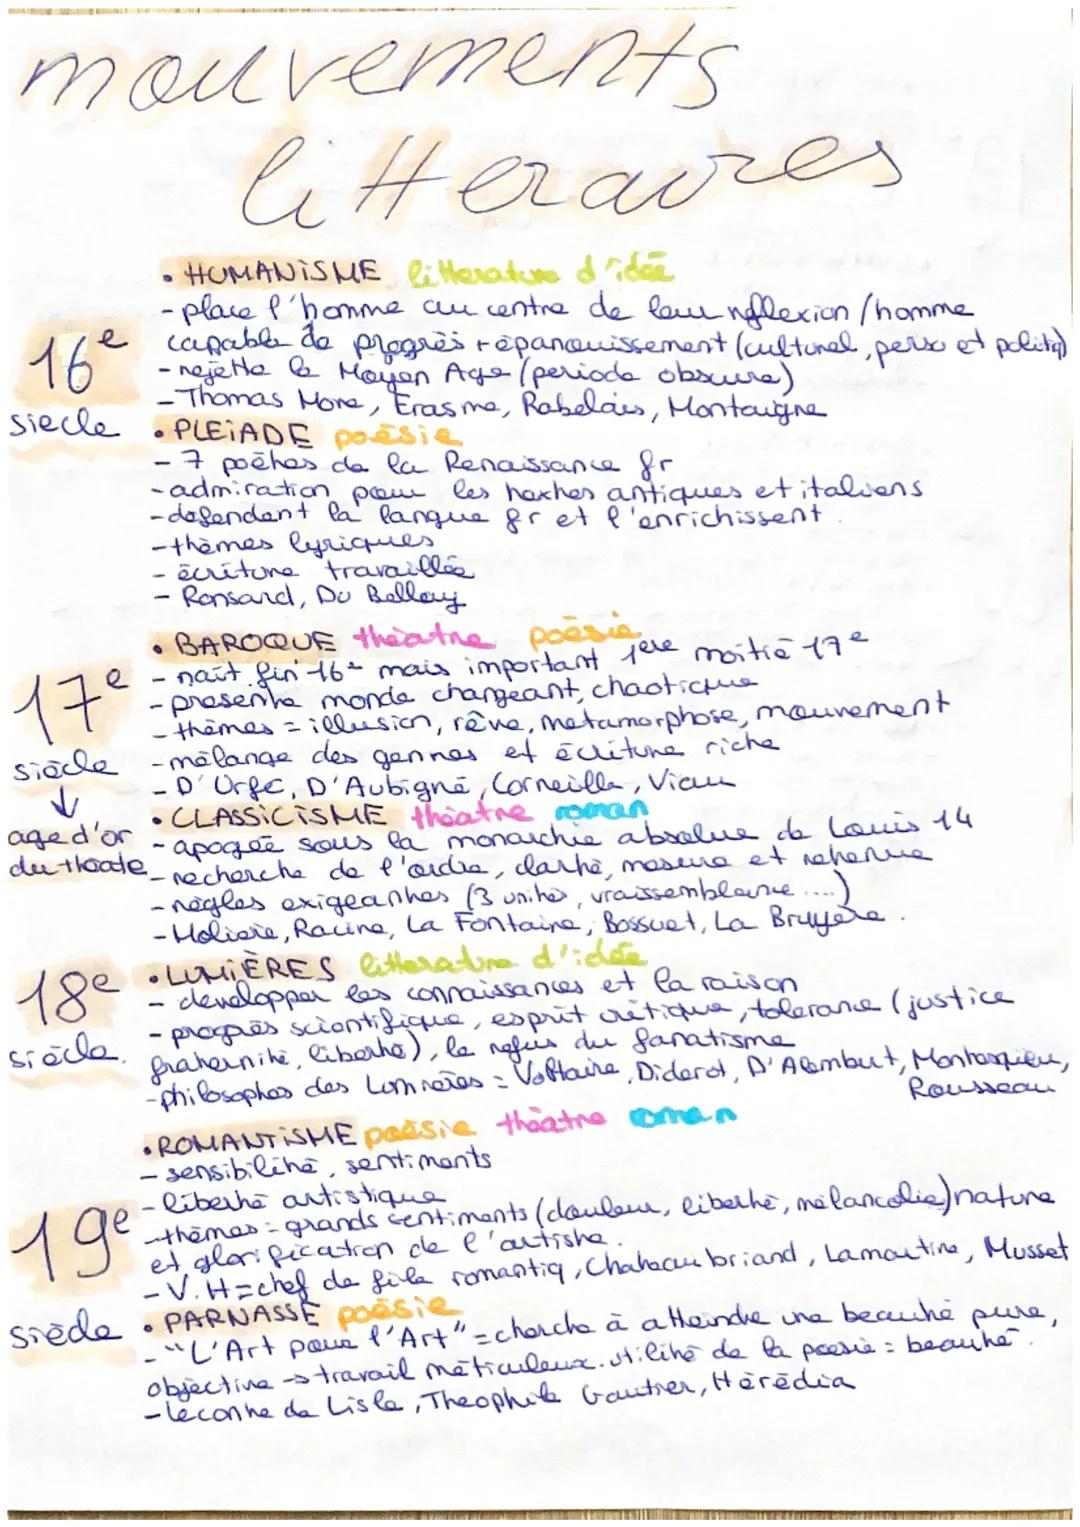 mouvements
litteraires
• HUMANISME litterature d'idée
- place l'homme au centre de leur reflexion / homme
16e capable de progrès + épanouissement (culturel, perso et politiq)
- rejette le Moyen Age (periode obscure)
- Thomas More, Erasme, Rabelais, Montaigne
siecle • PLEÏADE poésie
- 7 poètes de la Renaissance fr
- admiration pour les textes antiques et italiens
- défendent la langue fr et l'enrichissent
- thèmes lyriques
- écriture travaillée
- Ronsard, Du Bellay
• BAROQUE théatre poésie
17e - nait fin 16e mais important 1ère moitié 17e
- presente monde changeant, chaotique
- thèmes = illusion, rêve, metamorphose, mouvement
siècle - mélange des genres et écriture riche
- D'Urfé, D'Aubigné, Corneille, Viau
↓ • CLASSICISME théatre roman
age d'or - apogée sous la monarchie absolue de Louis 14
du théatre - recherche de l'ordre, clarté, mesure et retenue
- règles exigeantes (3 unités, vraissemblance ....)
- Moliere, Racine, La Fontaine, Bossuet, La Bruyère.
18e • LUMIÈRES litterature d'idée
- developper les connaissances et la raison
- progrès scientifique, esprit critique, tolerance (justice
siècle. fraternité, liberté), le refus du fanatisme
- philosophes des Lumières = Voltaire, Diderot, D'Alembert, Montesquieu,
Rousseau
• ROMANTISME poésie théatre roman
- sensibilité, sentiments
- liberté artistique
19e - thèmes = grands sentiments (douleur, liberté, mélancolie) nature
et glorification de l'artiste.
- V.H = chef de file romantiq, Chateaubriand, Lamartine, Musset
siècle • PARNASSE poésie
- "L'Art pour l'Art" = cherche à atteindre une beauté pure,
objective → travail méticuleux. utilité de la poesie = beauté.
- Leconte de Lisle, Theophile Gautier, Hérédia